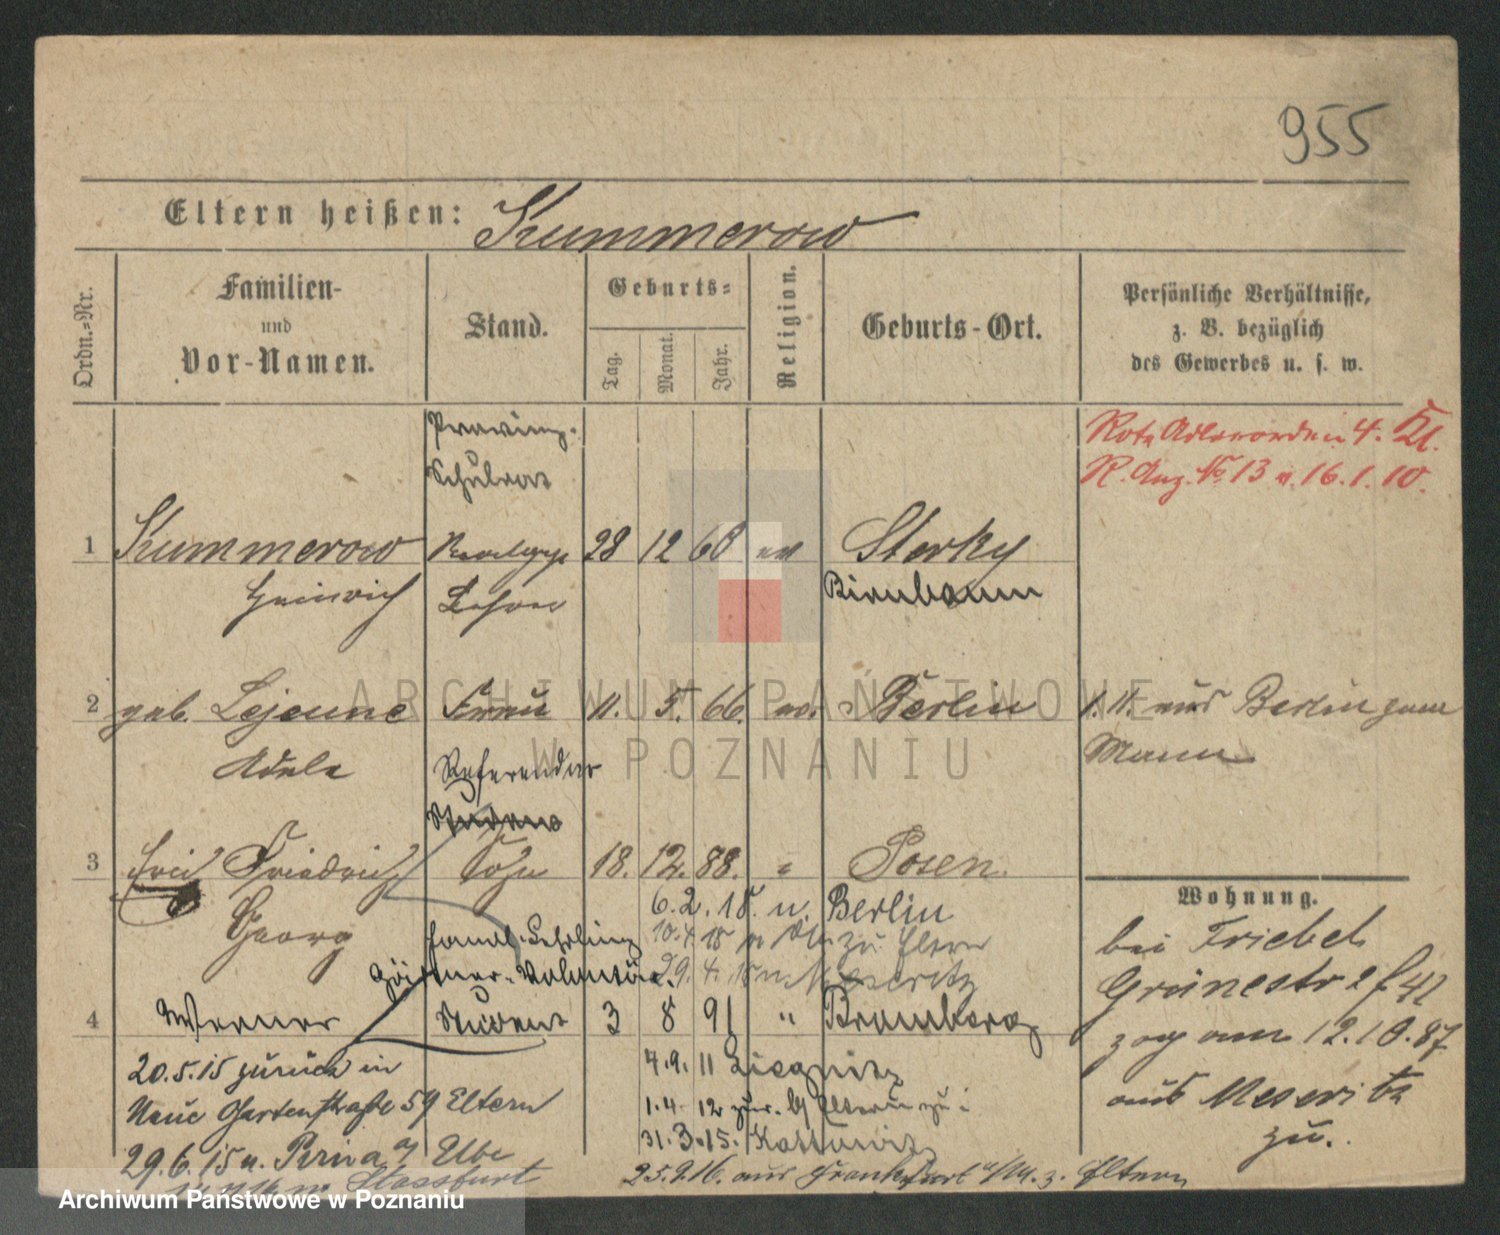 955
Eltern heißen: Kummerow
Ordn.-Nr.
Familien-
und
Vor-Namen.
Stand.
Geburts-
Tag.
Monat.
Jahr.
Religion.
Geburts-Ort.
Persönliche Verhältnisse,
z. B. bezüglich
des Gewerbes u. s. w.
Provinz.
Schulrat
Rote Adlerorden 4. Kl.
R. Anz. No 13 v. 16.1.10.
1 Kummerow 28 12 60 ev Storky
Heinrich Lehrer Birnbaum
2 geb. Lejeune Frau 11. 5. 66. ev. Berlin 1.11. aus Berlin zum
Adele Manne
Referendar
Student
3 Friedrich Sohn 18. 12. 88. " Posen.
Georg
6.2.15. n. Berlin
Handl. Lehrling zu Eltern
Gärtner-Volontär. 29.4.15 n. Meseritz
4 Werner Student 3 8 91 " Bromberg
20.5.15 zurück in
Neue Gartenstraße 59 Eltern
29.6.15 n. Pirna a/ Elbe
n. Stassfurt
4.9.11 Liegnitz
1.4.12 zur. Eltern zu
31.3.15. Kattowitz
25.9.16. aus Frankfurt a/M. z. Eltern
Wohnung.
bei Friebel
Grünestr 2
zog am 12.10.87
aus Meseritz
zu.
ARCHIWUM PAŃSTWOWE
W POZNANIU
Archiwum Państwowe w Poznaniu